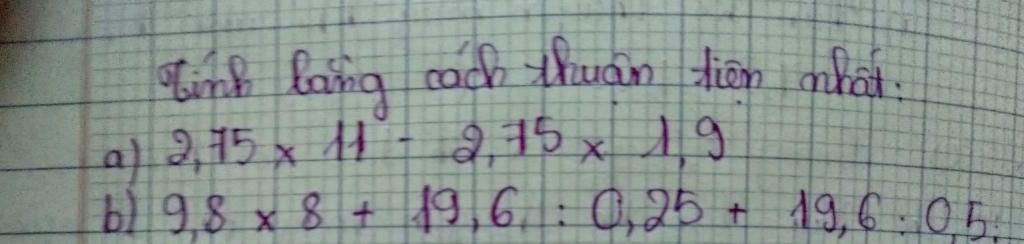 Tính bằng cách thuận tiện nhất:
a) 2,75 x 11 - 2,75 x 1,9
b) 9,8 x 8 + 19,6 : 0,25 + 19,6 : 0,5.